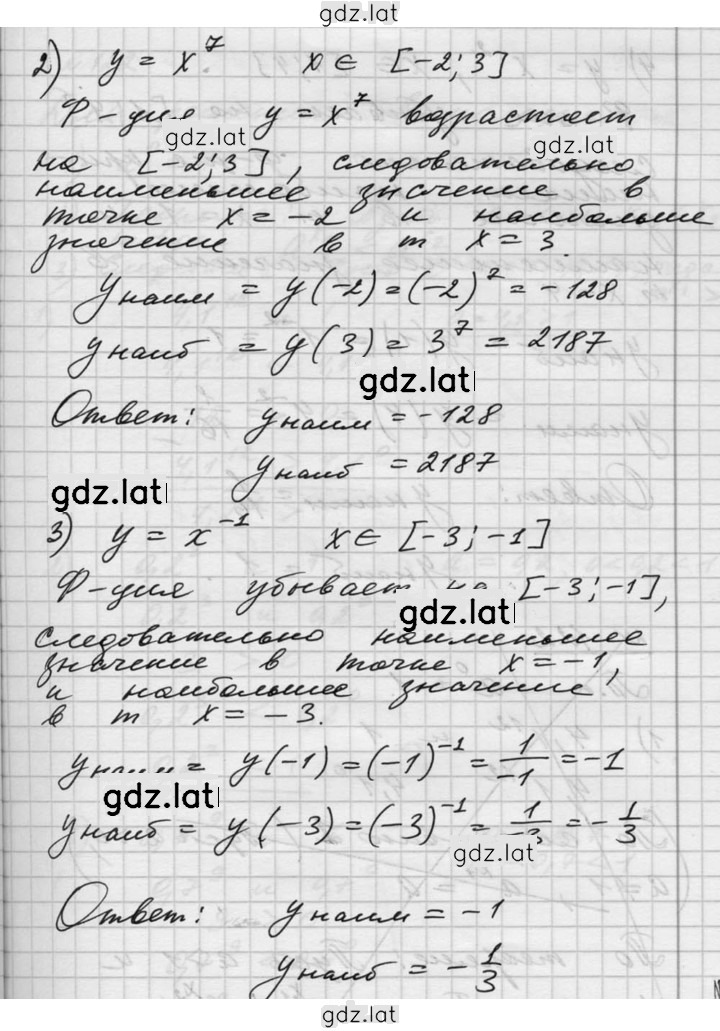 gdz.lat
2) y = x⁷. x ∈ [-2; 3]
Ф-ция y = x⁷ возрастает
gdz.lat
gdz.lat
на [-2; 3], следовательно
наименьшее значение в
точке x = -2 и наибольше
значение в т x = 3.
y наим = y(-2) = (-2)⁷ = -128
y наиб = y(3) = 3⁷ = 2187
gdz.lat
Ответ: y наим = -128
y наиб = 2187
gdz.lat
3) y = x⁻¹ x ∈ [-3; -1]
Ф-ция убывает на [-3; -1],
gdz.lat
следовательно наименьшее
значение в точке x = -1,
и наибольшее значение
в т x = -3.
y наим = y(-1) = (-1)⁻¹ = 1/-1 = -1
gdz.lat
y наиб = y(-3) = (-3)⁻¹ = 1/-3 = -1/3
gdz.lat
Ответ: y наим = -1
y наиб = -1/3
gdz.lat